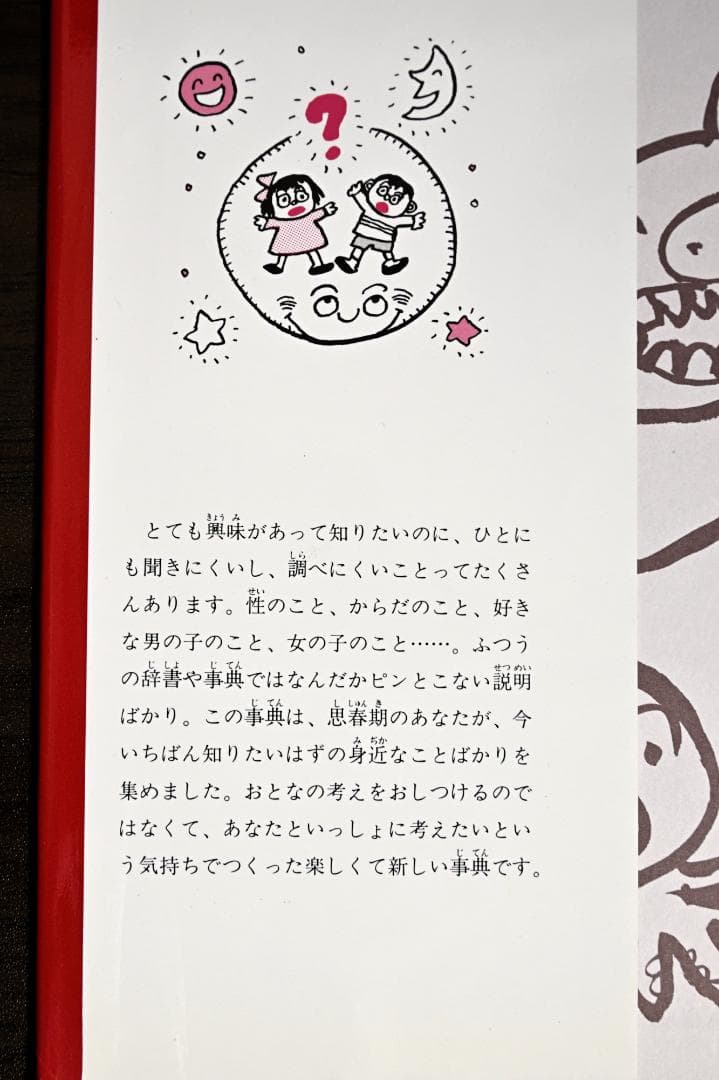 ?
とても興味があって知りたいのに、ひとに
も聞きにくいし、調べにくいことってたくさ
んあります。性のこと、からだのこと、好き
な男の子のこと、女の子のこと……。ふつう
の辞書や事典ではなんだかピンとこない説明
ばかり。この事典は、思春期のあなたが、今
いちばん知りたいはずの身近なことばかりを
集めました。おとなの考えをおしつけるので
はなくて、あなたといっしょに考えたいとい
う気持ちでつくった楽しくて新しい事典です。